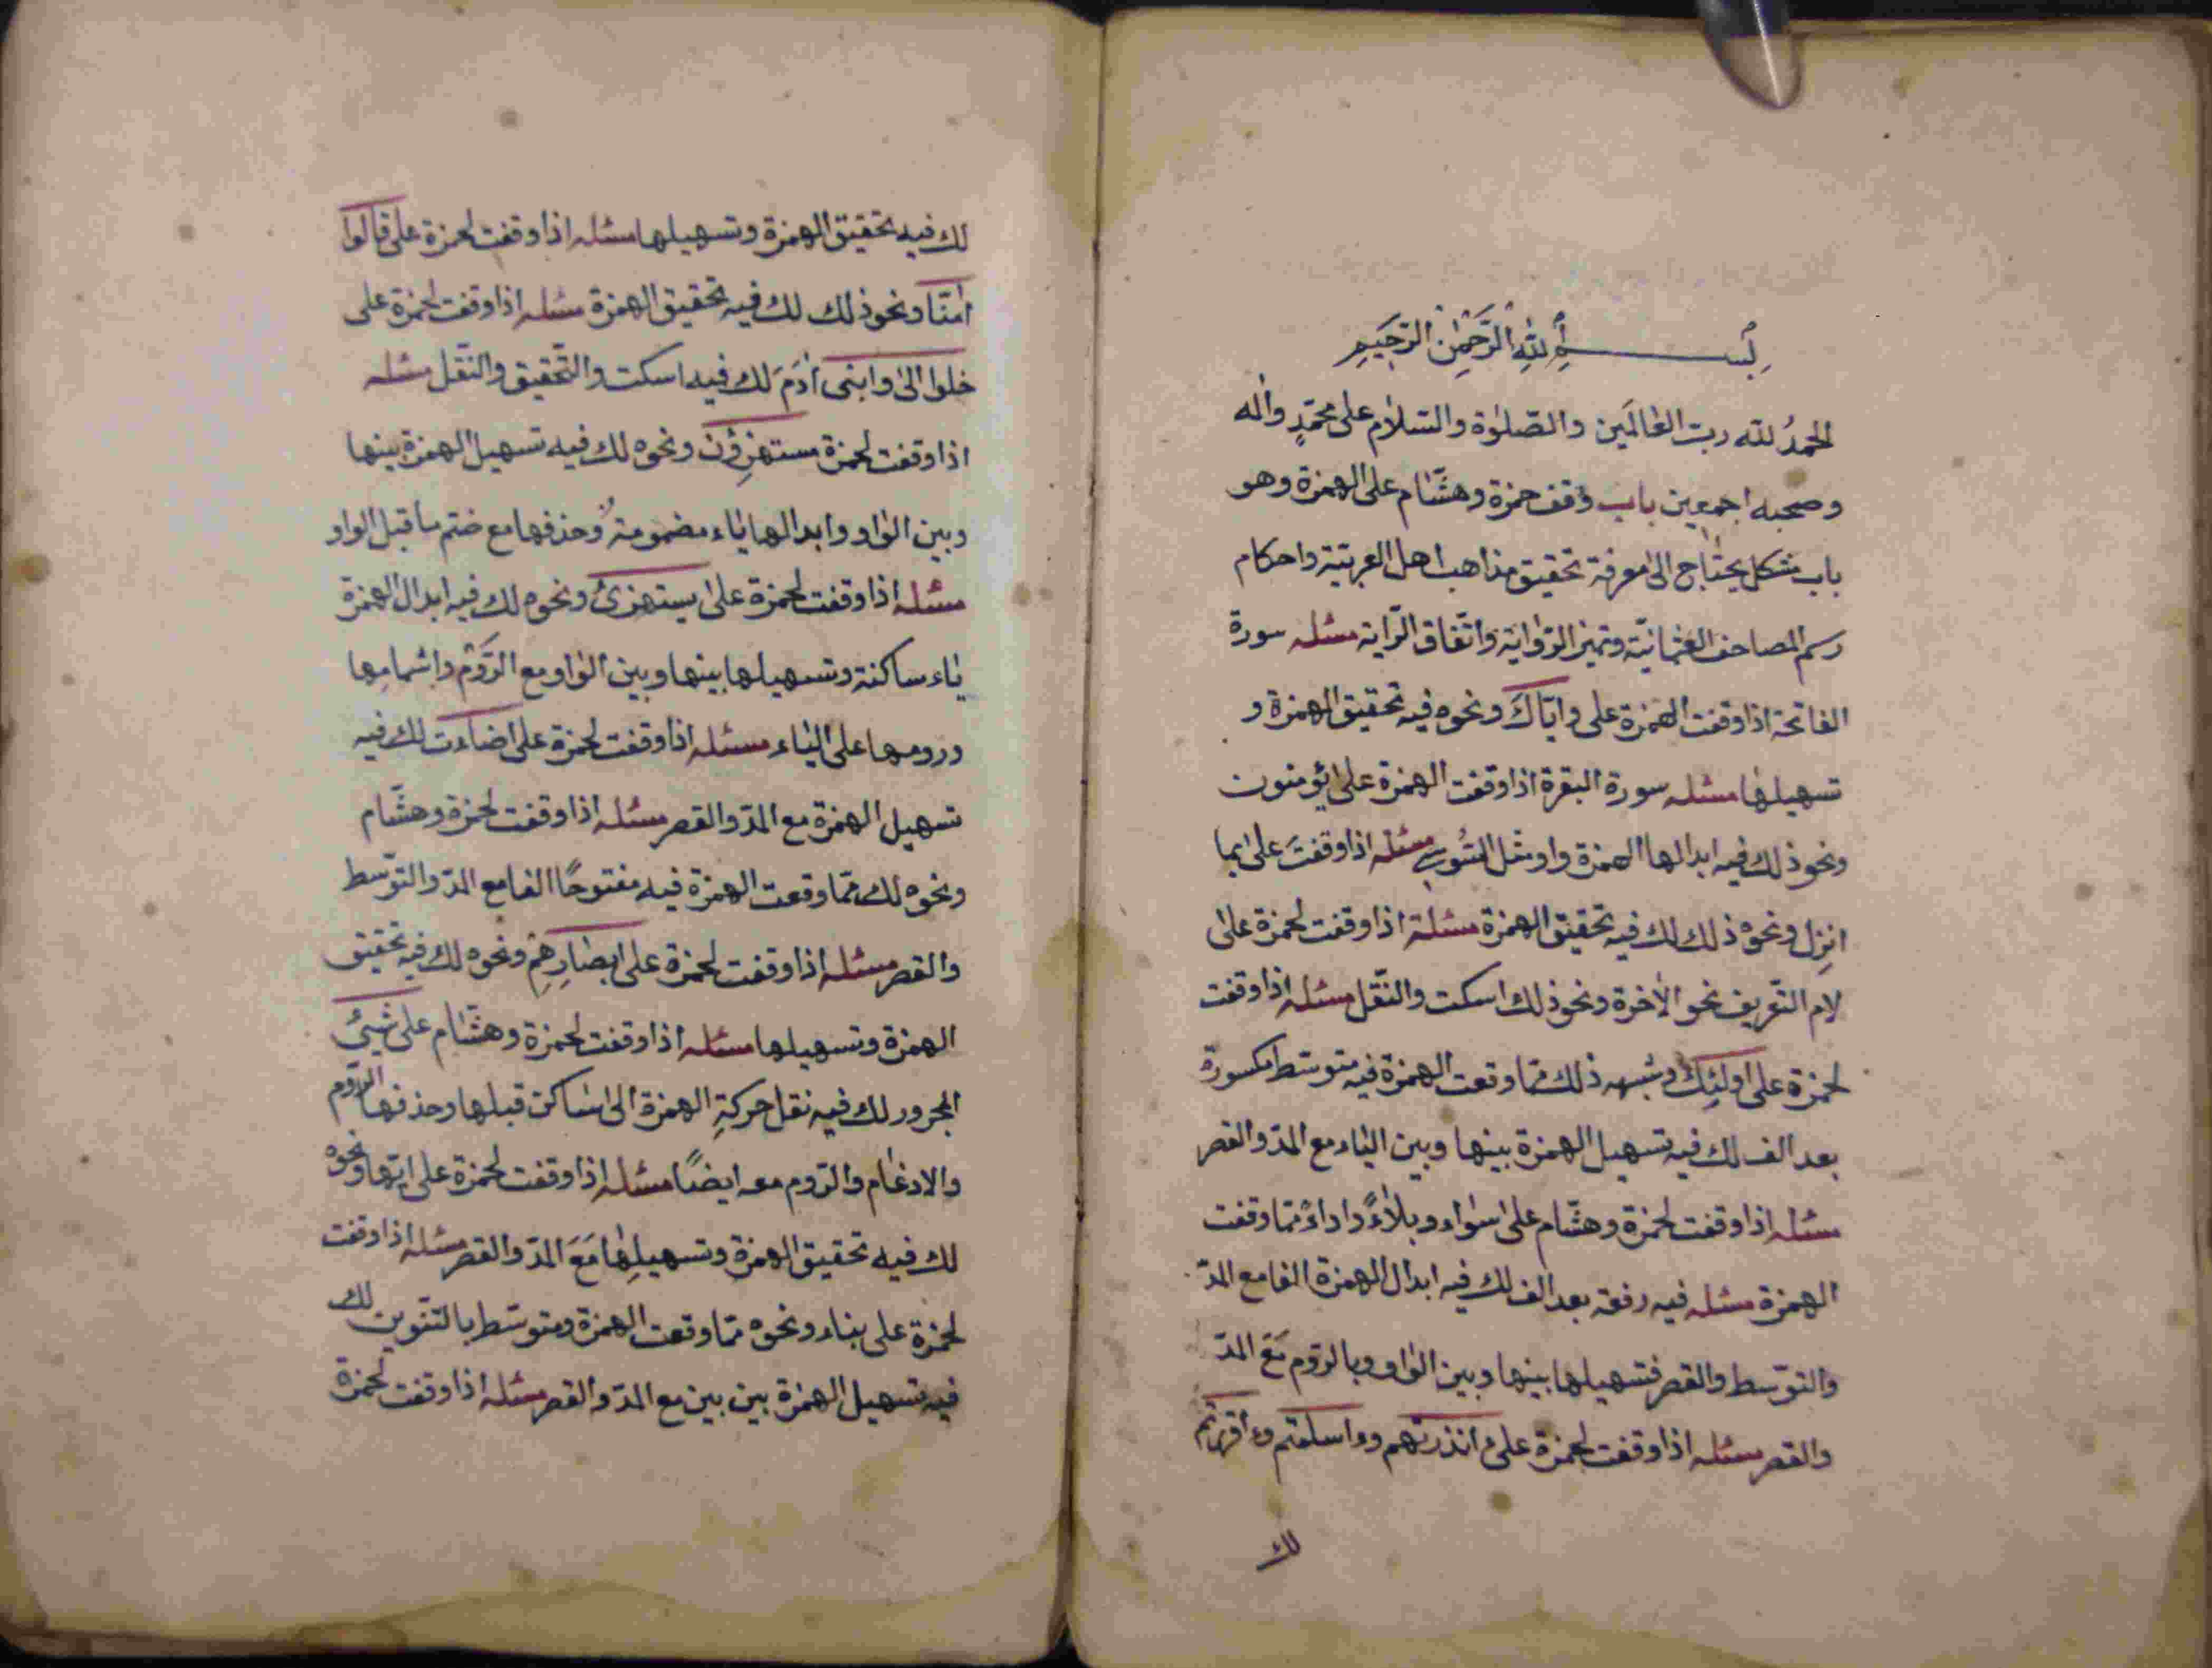 بسم الله الرحمن الرحيم
الحمدُ لله ربّ العالمين والصّلوة والسّلام على محمّدٍ واله
وصحبه اجمعين باب وقف حمزة وهشّام على الهمزة وهو
باب مشكل يحتاج الى معرفة تحقيق مذاهب اهل العربيّة واحكام
رسم المصاحف العثمانيّة وتميز الرّواية واتّفاق الرّاية مسئله سورة
الفاتحة اذا وقفت الهمزة على وايّاكَ ونحوه فيه تحقيق الهمزة و
تسهيلها مسئله سورة البقرة اذا وقفت الهمزة على يؤمنون
ونحو ذلك فيه ابدالها الهمزة واو مثل السّوسى مسئله اذا وقفتَ على بما
انزِل ونحوه ذلك لك فيه تحقيق الهمزة مسئلة اذا وقفت لحمزة على
لام التّعريف نحو الاخرة ونحو ذلك اسكت والنّقل مسئله اذا وقفت
لحمزة على اولئِك وشبهه ذلك ممّا وقعت الهمزة فيه متوسّط مكسورة
بعد الف لك فيه تسهيل الهمزة بينها وبين الياء مع المدّ والقصر
مسئله اذا وقفت لحمزة وهشّام على سواء وبلاءً واداءً ممّا وقفت
الهمزة مسئله فيه رفعة بعد الف لك فيه ابدال الهمزة الفا مع المدّ
والتوسّط والقصر فتسهيلها بينها وبين الواو وبالروم مَعَ المدّ
والقصر مسئله اذا وقفت لحمزة على ءانذرتهم وءاسلمتم وءاقررتم
لك
لك فيه تحقيق الهمزة وتسهيلها مسئله اذا وقفت لحمزة على قالوا
امنّا ونحو ذلك لك فيه تحقيق الهمزة مسئله اذا وقفت لحمزة على
خلوا الى وابنى ادَمَ لك فيه اسكت والتّحقيق والنّقل مسئله
اذا وقفت لحمزة مستهزِؤن ونحوه لك فيه تسهيل الهمزة بينها
وبين الواو وابدالها ياء مضمومة وحذفها مع ضتم ما قبل الواو
مسئله اذا وقفت لحمزة على يستهزئ ونحوه لك فيه ابدال الهمزة
ياء ساكنة وتسهيلها بينها وبين الواو مع الرَّوْم واشمامِها
ورومها على الياء مسئله اذا وقفت لحمزة على اضاءت لك فيه
تسهيل الهمزة مع المدّ والقصر مسئله اذا وقفت لحمزة وهشّام
ونحوه لك ممّا وقعت الهمزة فيه مفتوحًا الفا مع المدّ والتوسّط
والقصر مسئله اذا وقفت لحمزة على ابصارِهِم ونحوه لك فيه تحقيق
الهمزة وتسهيلها مسئله اذا وقفت لحمزة وهشّام على شيئٍ
المجرور لك فيه نقل حركةِ الهمزة الى الساكن قبلها وحذفها الرّوم
والادغام والرّوم معه ايضًا مسئله اذا وقفت لحمزة على ايّها ونحوه
لك فيه تحقيق الهمزة وتسهيلِها مَعَ المدّ والقصر مسئله اذا وقفت
لحمزة على بناء ونحوه ممّا وقعت الهمزة ومتوسّط بالتنّوين لك
فيه تسهيل الهمزة بين بين مع المدّ والقصر مسئله اذا وقفت لحمزة